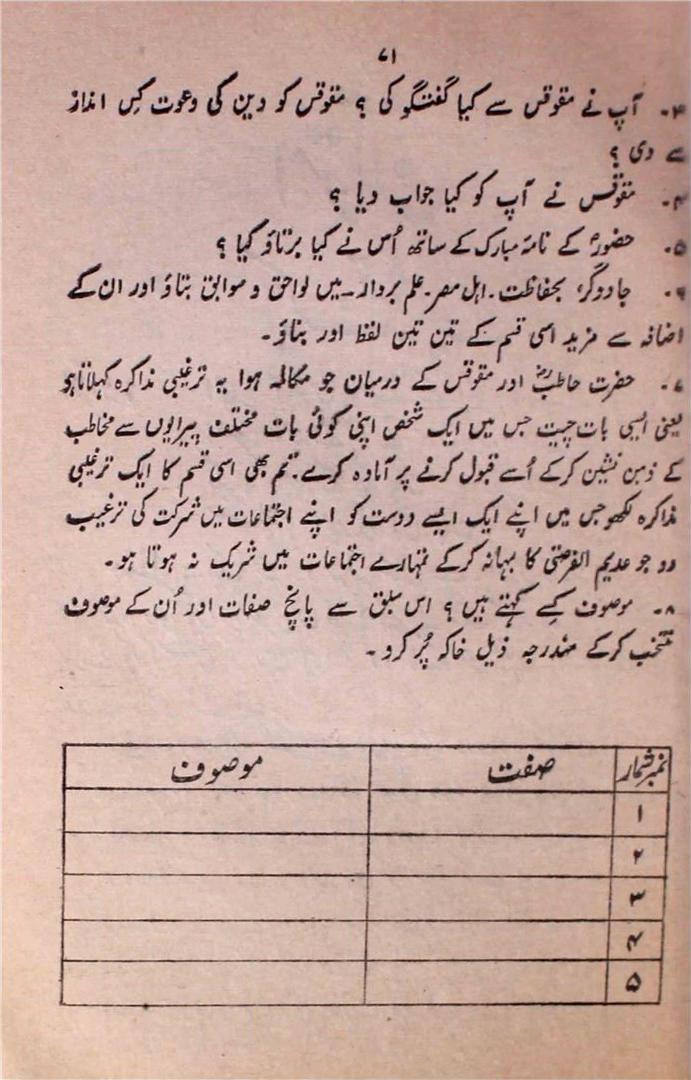 ۷۱
۳۔ آپ نے مقوقس سے کیا گفتگو کی ؟ مقوقس کو دین کی دعوت کِس انداز
سے دی ؟
۴۔ مقوقس نے آپ کو کیا جواب دیا ؟
۵۔ حضورؐ کے نامۂ مبارک کے ساتھ اُس نے کیا برتاؤ کیا ؟
۶۔ جادوگر، بحفاظت۔ اہل مصر۔ علم بردار۔ میں لواحق و سوابق بتاؤ اور ان کے
اضافہ سے مزید اسی قسم کے تین تین لفظ اور بناؤ۔
۷۔ حضرت حاطبؓ اور مقوقس کے درمیان جو مکالمہ ہوا یہ ترغیبی مذاکرہ کہلاتا ہے
یعنی ایسی بات چیت جس میں ایک شخص اپنی کوئی بات مختلف پیرایوں سے مخاطب
کے ذہن نشین کرکے اُسے قبول کرنے پر آمادہ کرے۔ تم بھی اسی قسم کا ایک ترغیبی
مذاکرہ لکھو جس میں اپنے ایک ایسے دوست کو اپنے اجتماعات میں شرکت کی ترغیب
دو جو عدیم الفرصتی کا بہانہ کرکے تمہارے اجتماعات میں شریک نہ ہوتا ہو۔
۸۔ موصوف کسے کہتے ہیں ؟ اس سبق سے پانچ صفات اور اُن کے موصوف
منتخب کرکے مندرجہ ذیل خاکہ پُر کرو۔
نمبر شمار صفت موصوف
۱
۲
۳
۴
۵